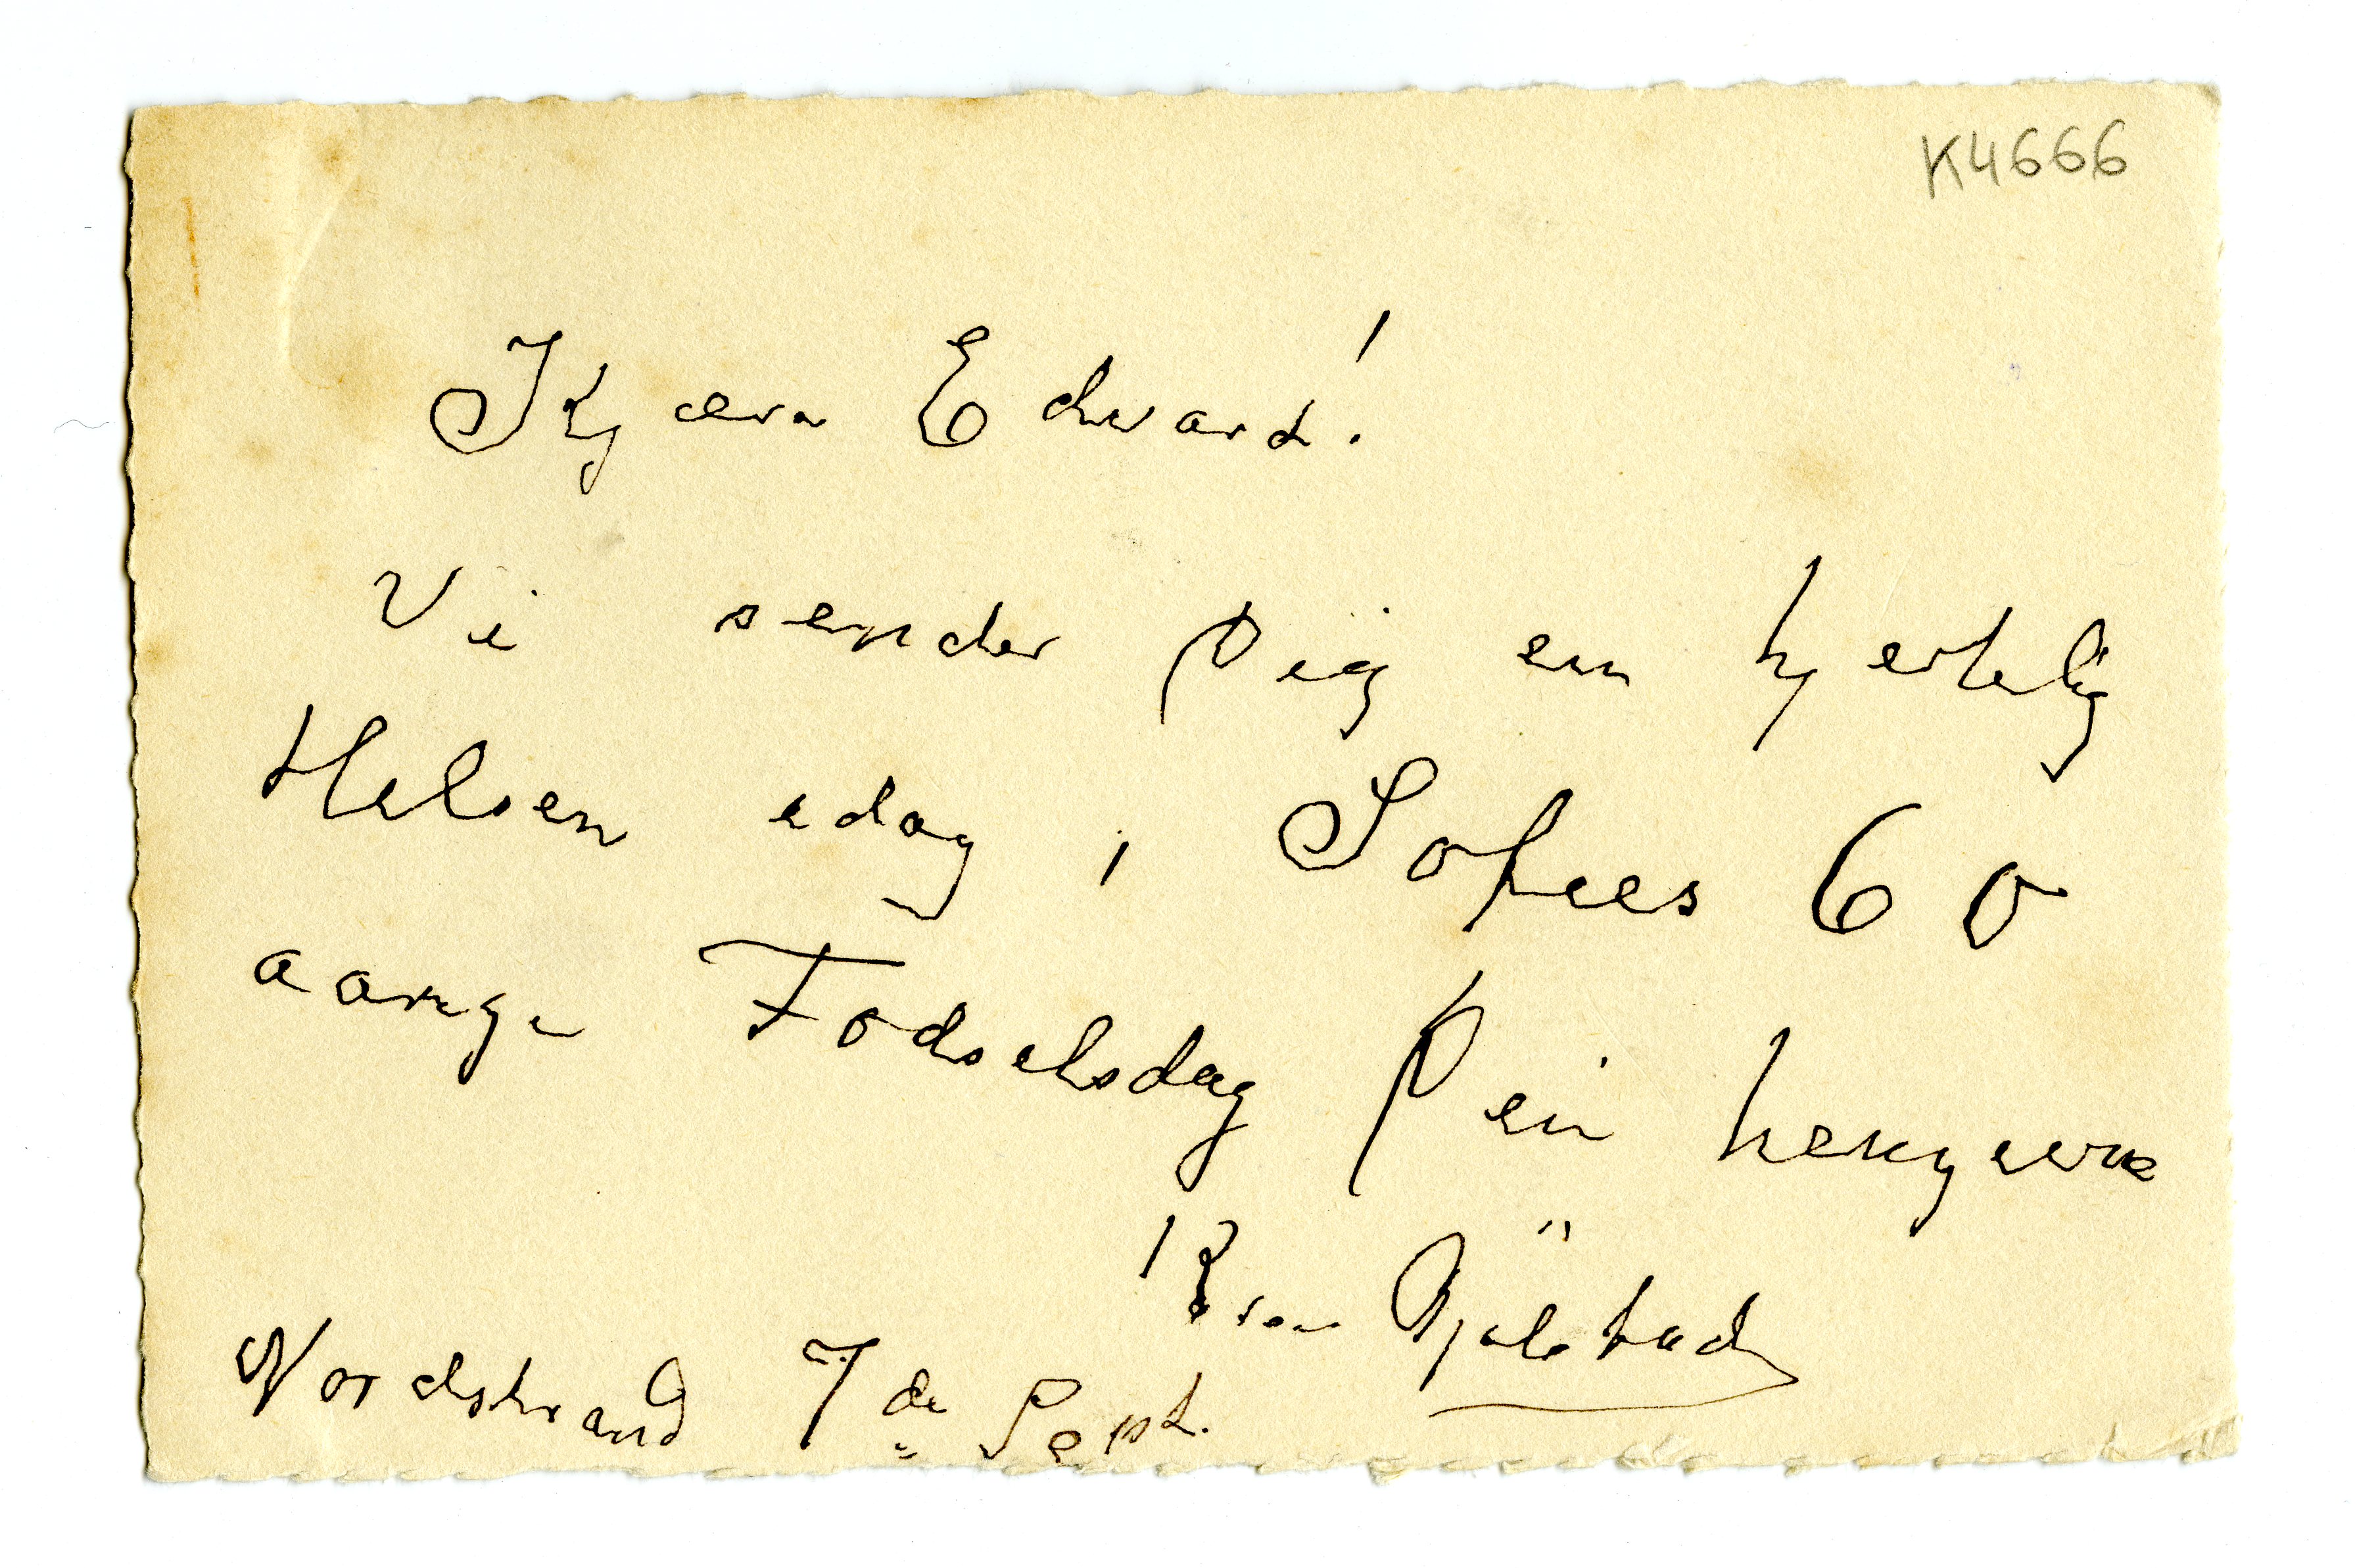 K4666
Kjære Edvard!
Vi sender Dig en hjertelig
Helsen idag, Sofies 60
aarige Fodselsdag Din hengivne
Karen Bjölstad
Nordstrand 7de Sept.